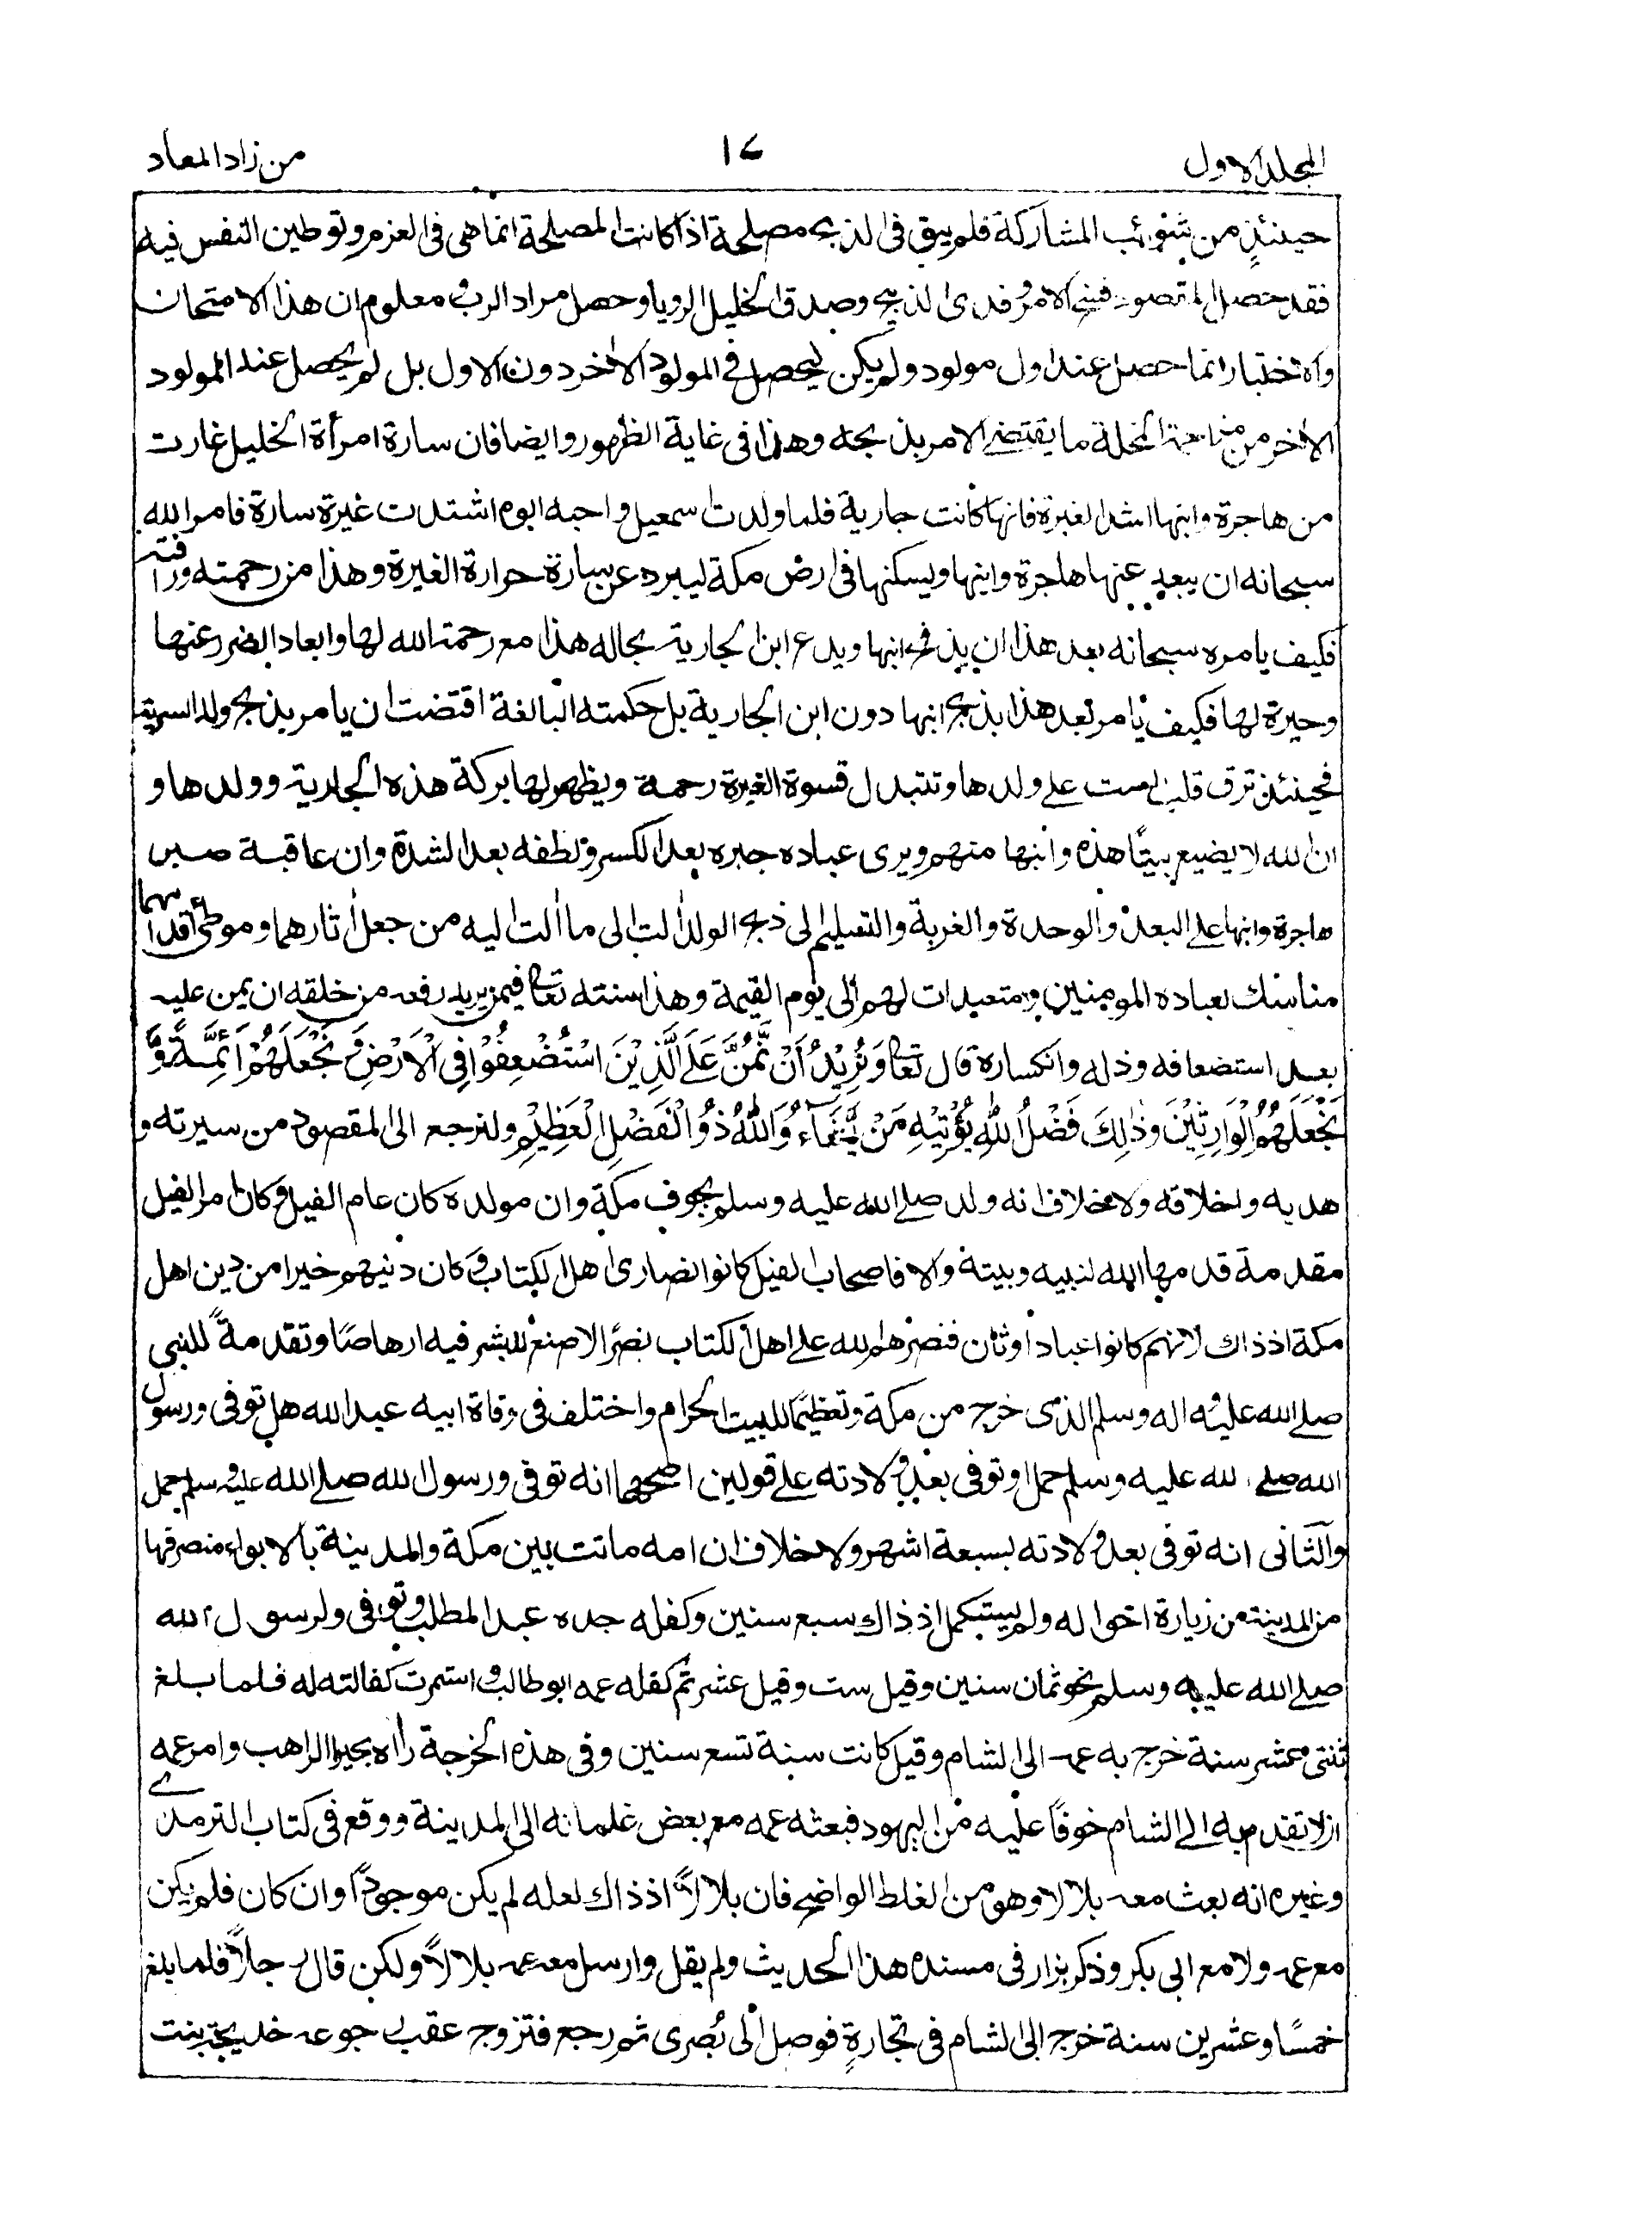 المجلد الاول
١٧
من زاد المعاد
حينئذٍ من شوائب المشاركة فلم يبق فى الذبح مصلحة اذا كانت المصلحة انما هى فى العزم وتوطين النفس فيه
فقد حصل المقصود فنسخ الامر وفدى الذبيح وصدق الخليل الرويا وحصل مراد الرب ومعلوم ان هذا الامتحان
والاختبار انما حصل عند اول مولود ولم يكن ليحصل فى المولود الاخر دون الاول بل لم يحصل عند المولود
الاخر من مزاحمة الخلة ما يقتضى الامر بذبحه وهذا فى غاية الظهور وايضا فان سارة امرأة الخليل غارت
من هاجرة وابنها اشد الغيرة فانها كانت جارية فلما ولدت اسمعيل واحبه ابوه اشتدت غيرة سارة فامر الله
سبحانه ان يبعد عنها هاجرة وابنها ويسكنها فى ارض مكة ليبرد عن سارة حرارة الغيرة وهذا من رحمته ورافته
فكيف يامره سبحانه بعد هذا ان يذبح ابنها ويدع ابن الجارية بحاله هذا مع رحمة الله لها وابعاد الضرر عنها
وحيرة لها فكيف يامر بعد هذا بذبح ابنها دون ابن الجارية بل حكمته البالغة اقتضت ان يامر بذبح ولد السرية
فحينئذ ترق قلب الست على ولدها وتتبدل قسوة الغيرة رحمة ويظهر لها بركة هذه الجارية وولدها و
ان الله لا يضيع بيتًا هذه وابنها منهم ويرى عباده جبره بعد الكسر ولطفه بعد الشدة وان عاقبة صبر
هاجرة وابنها على البعد والوحدة والغربة والتسليم الى ذبح الولد الت الى ما الت اليه من جعل اثارهما وموطئ اقدامهما
مناسك لعباده المومنين ومتعبدات لهم الى يوم القيمة وهذا سنته تعالى فيمن يريد رفعه من خلقه ان يمن عليه
بعد استضعافه وذله وانكساره قال تعالى وَنُرِيْدُ اَنْ نَّمُنَّ عَلَى الَّذِيْنَ اسْتُضْعِفُوْا فِى الْاَرْضِ وَ نَجْعَلَهُمْ اَئِمَّةً وَّ
نَجْعَلَهُمُ الْوَارِثِيْنَ وَذٰلِكَ فَضْلُ اللّٰهِ يُؤْتِيْهِ مَنْ يَّشَآءُ وَاللّٰهُ ذُو الْفَضْلِ الْعَظِيْمِ ولنرجع الى المقصود من سيرته و
هديه واخلاقه ولا خلاف انه ولد صلى الله عليه وسلم بجوف مكة وان مولده كان عام الفيل وكان امر الفيل
مقدمة قدمها الله لنبيه وبيته والا فاصحاب الفيل كانوا نصارى اهل الكتاب وكان دنيهم خيرا من دين اهل
مكة اذ ذاك لانهم كانوا عباد اوثان فنصرهم الله على اهل الكتاب نصرًا لا صنع للبشر فيه ارهاصًا وتقدمةً للنبى
صلى الله عليه واله وسلم الذى خرج من مكة وتعظيمًا للبيت الحرام واختلف فى وفاة ابيه عبد الله هل توفى ورسول
الله صلى الله عليه وسلم حمل او توفى بعد ولادته على قولين اصحهما انه توفى ورسول الله صلى الله عليه وسلم حمل
والثانى انه توفى بعد ولادته بسبعة اشهر ولا خلاف ان امه ماتت بين مكة والمدينة بالابواء منصرفها
من المدينة من زيارة اخواله ولم يستكمل اذ ذاك سبع سنين وكفله جده عبد المطلب وتوفى ولرسول الله
صلى الله عليه وسلم نحو ثمان سنين وقيل ست وقيل عشر ثم كفله عمه ابو طالب واستمرت كفالته له فلما بلغ
ثنتى عشر سنة خرج به عمه الى الشام وقيل كانت سنة تسع سنين وفى هذه الخرجة راه بحيرا الراهب وامر عمه
ان لا تقدم به الى الشام خوفًا عليه من اليهود فبعثه عمه مع بعض غلمانه الى المدينة ووقع فى كتاب الترمذى
وغيره انه بعث معه بلالا وهو من الغلط الواضح فان بلالاً اذ ذاك لعله لم يكن موجودًا وان كان فلم يكن
مع عمه ولا مع ابى بكر وذكر بزار فى مسنده هذا الحديث ولم يقل وارسل معه عمه بلالاً ولكن قال رجلاً فلما بلغ
خمسًا وعشرين سنة خرج الى الشام فى تجارةٍ فوصل الى بُصرى ثم رجع فتزوج عقب رجوعه خديجة بنت